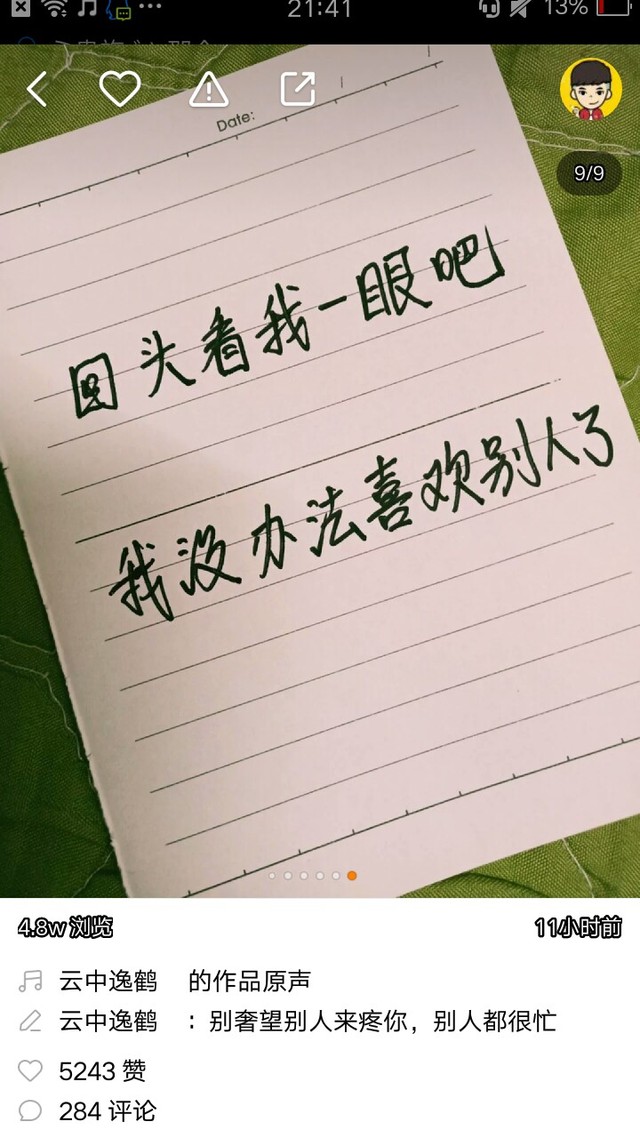 21:41
13%
Date:
9/9
回头看我一眼吧
我没办法喜欢别人了
4.8w 浏览
11小时前
云中逸鹤 的作品原声
云中逸鹤 ：别奢望别人来疼你，别人都很忙
5243 赞
284 评论